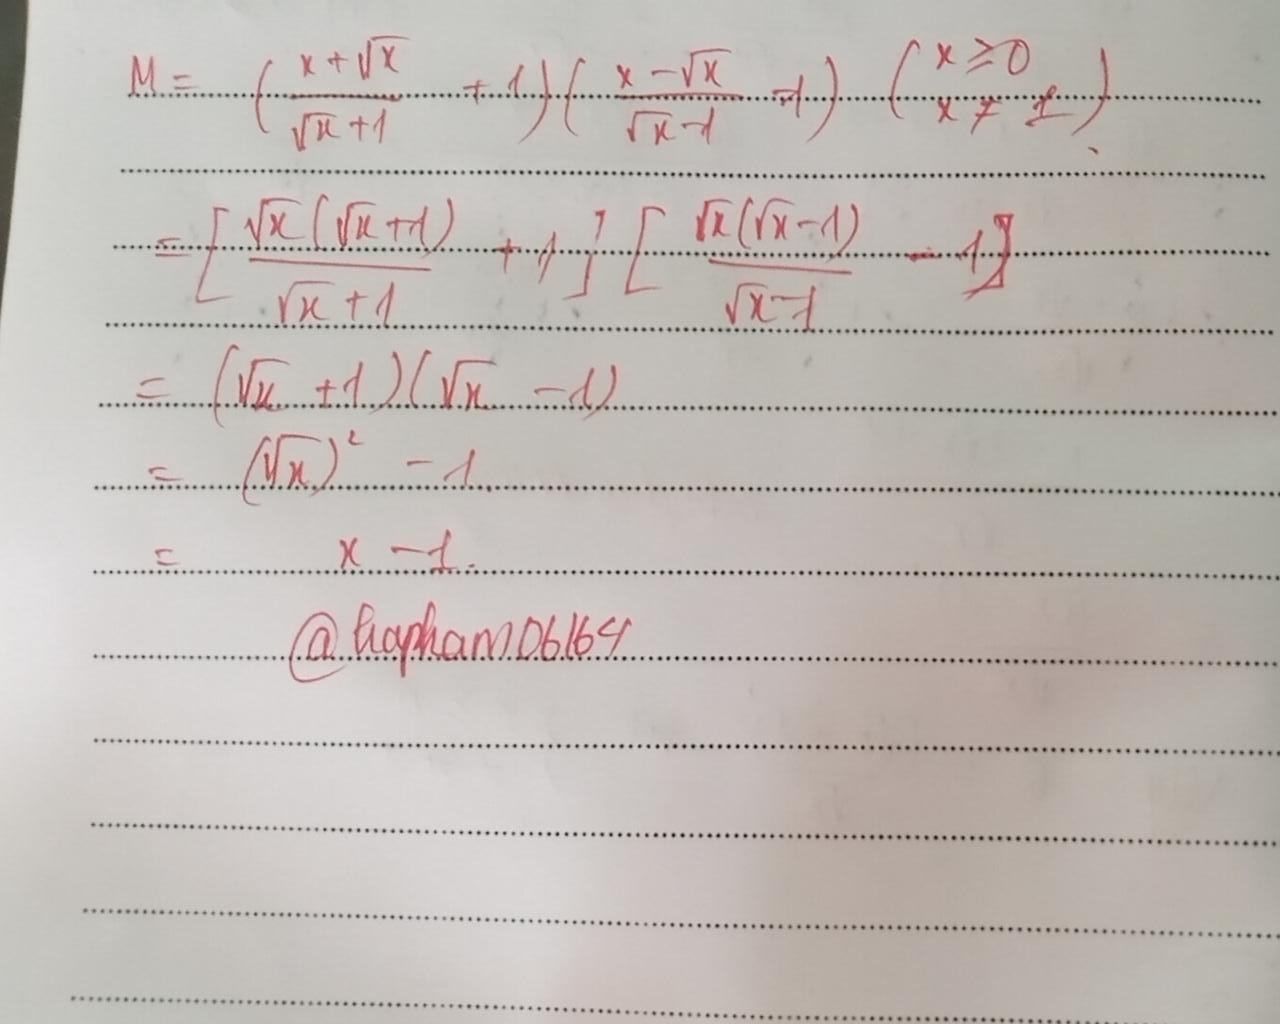 M = ( (x + √x)/(√x + 1) + 1 ) ( (x - √x)/(√x - 1) - 1 ) ( x ≥ 0 x ≠ 1 )
= [ √x(√x + 1)/(√x + 1) + 1 ] [ √x(√x - 1)/(√x - 1) - 1 ]
= (√x + 1)(√x - 1)
= (√x)² - 1
= x - 1.
@hapham06164